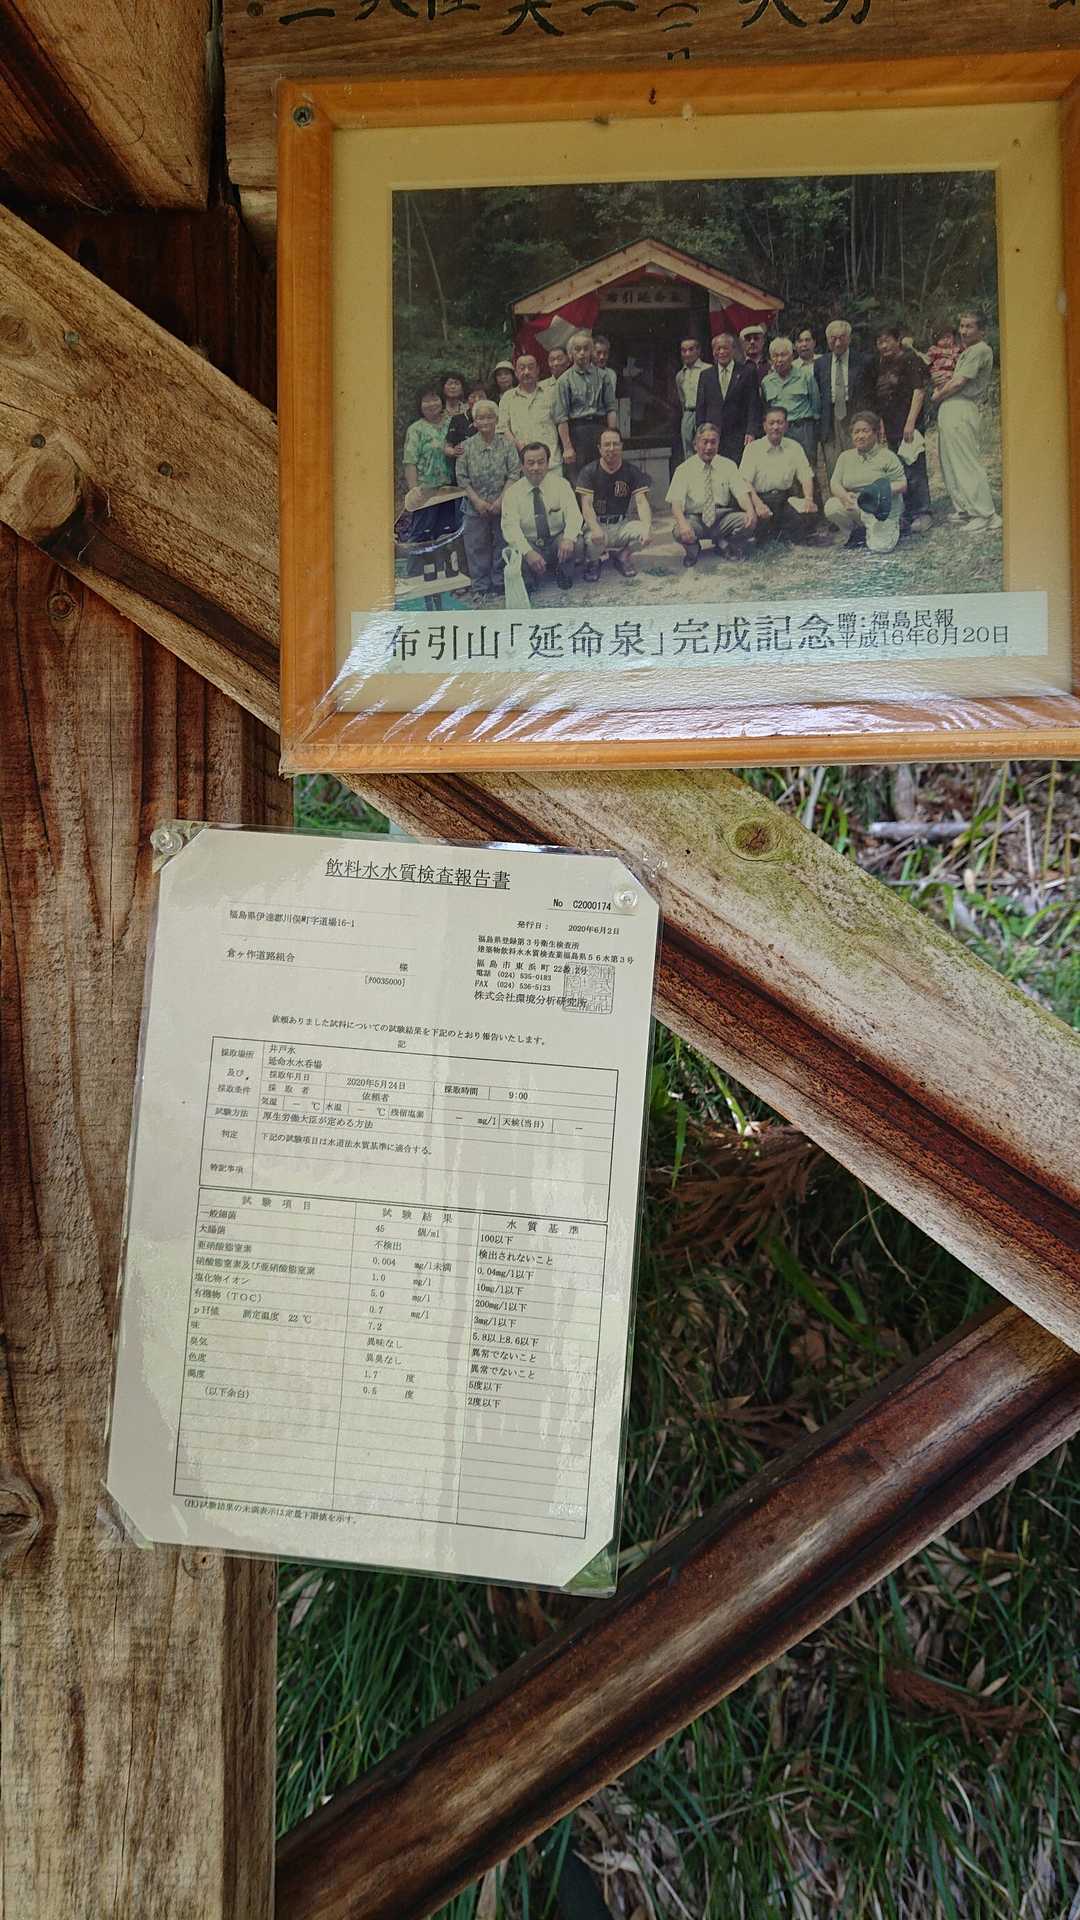 布引延命泉
布引山「延命泉」完成記念
贈:福島民報
平成16年6月20日
飲料水水質検査報告書
No C2000174
発行日: 2020年6月2日
福島県伊達郡川俣町字道場16-1
倉ヶ作道路組合
様
[ﾅ0035000]
福島県登録第3号衛生検査所
建築物飲料水水質検査業福島県56水第3号
福島市東浜町22番2号
電話 (024) 535-0183
FAX (024) 536-5123
株式会社環境分析研究所
依頼ありました試料についての試験結果を下記のとおり報告いたします。
記
採取場所 及び、 採取条件
井戸水
延命水水呑場
採取年月日 2020年5月24日 採取時間 9:00
採取者 依頼者
気温 - ℃ 水温 - ℃ 残留塩素 - mg/l 天候(当日) -
試験方法 厚生労働大臣が定める方法
判定 下記の試験項目は水道法水質基準に適合する。
特記事項
試験項目 試験結果 水質基準
一般細菌 45 個/ml 100以下
大腸菌 不検出 検出されないこと
亜硝酸態窒素 0.004 mg/l未満 0.04mg/l以下
硝酸態窒素及び亜硝酸態窒素 1.0 mg/l 10mg/l以下
塩化物イオン 5.0 mg/l 200mg/l以下
有機物(TOC) 0.7 mg/l 3mg/l以下
pH値 測定温度 22℃ 7.2 5.8以上8.6以下
味 異味なし 異常でないこと
臭気 異臭なし 異常でないこと
色度 1.7 度 5度以下
濁度 0.5 度 2度以下
(以下余白)
(注)試験結果の未満表示は定量下限値を示す。